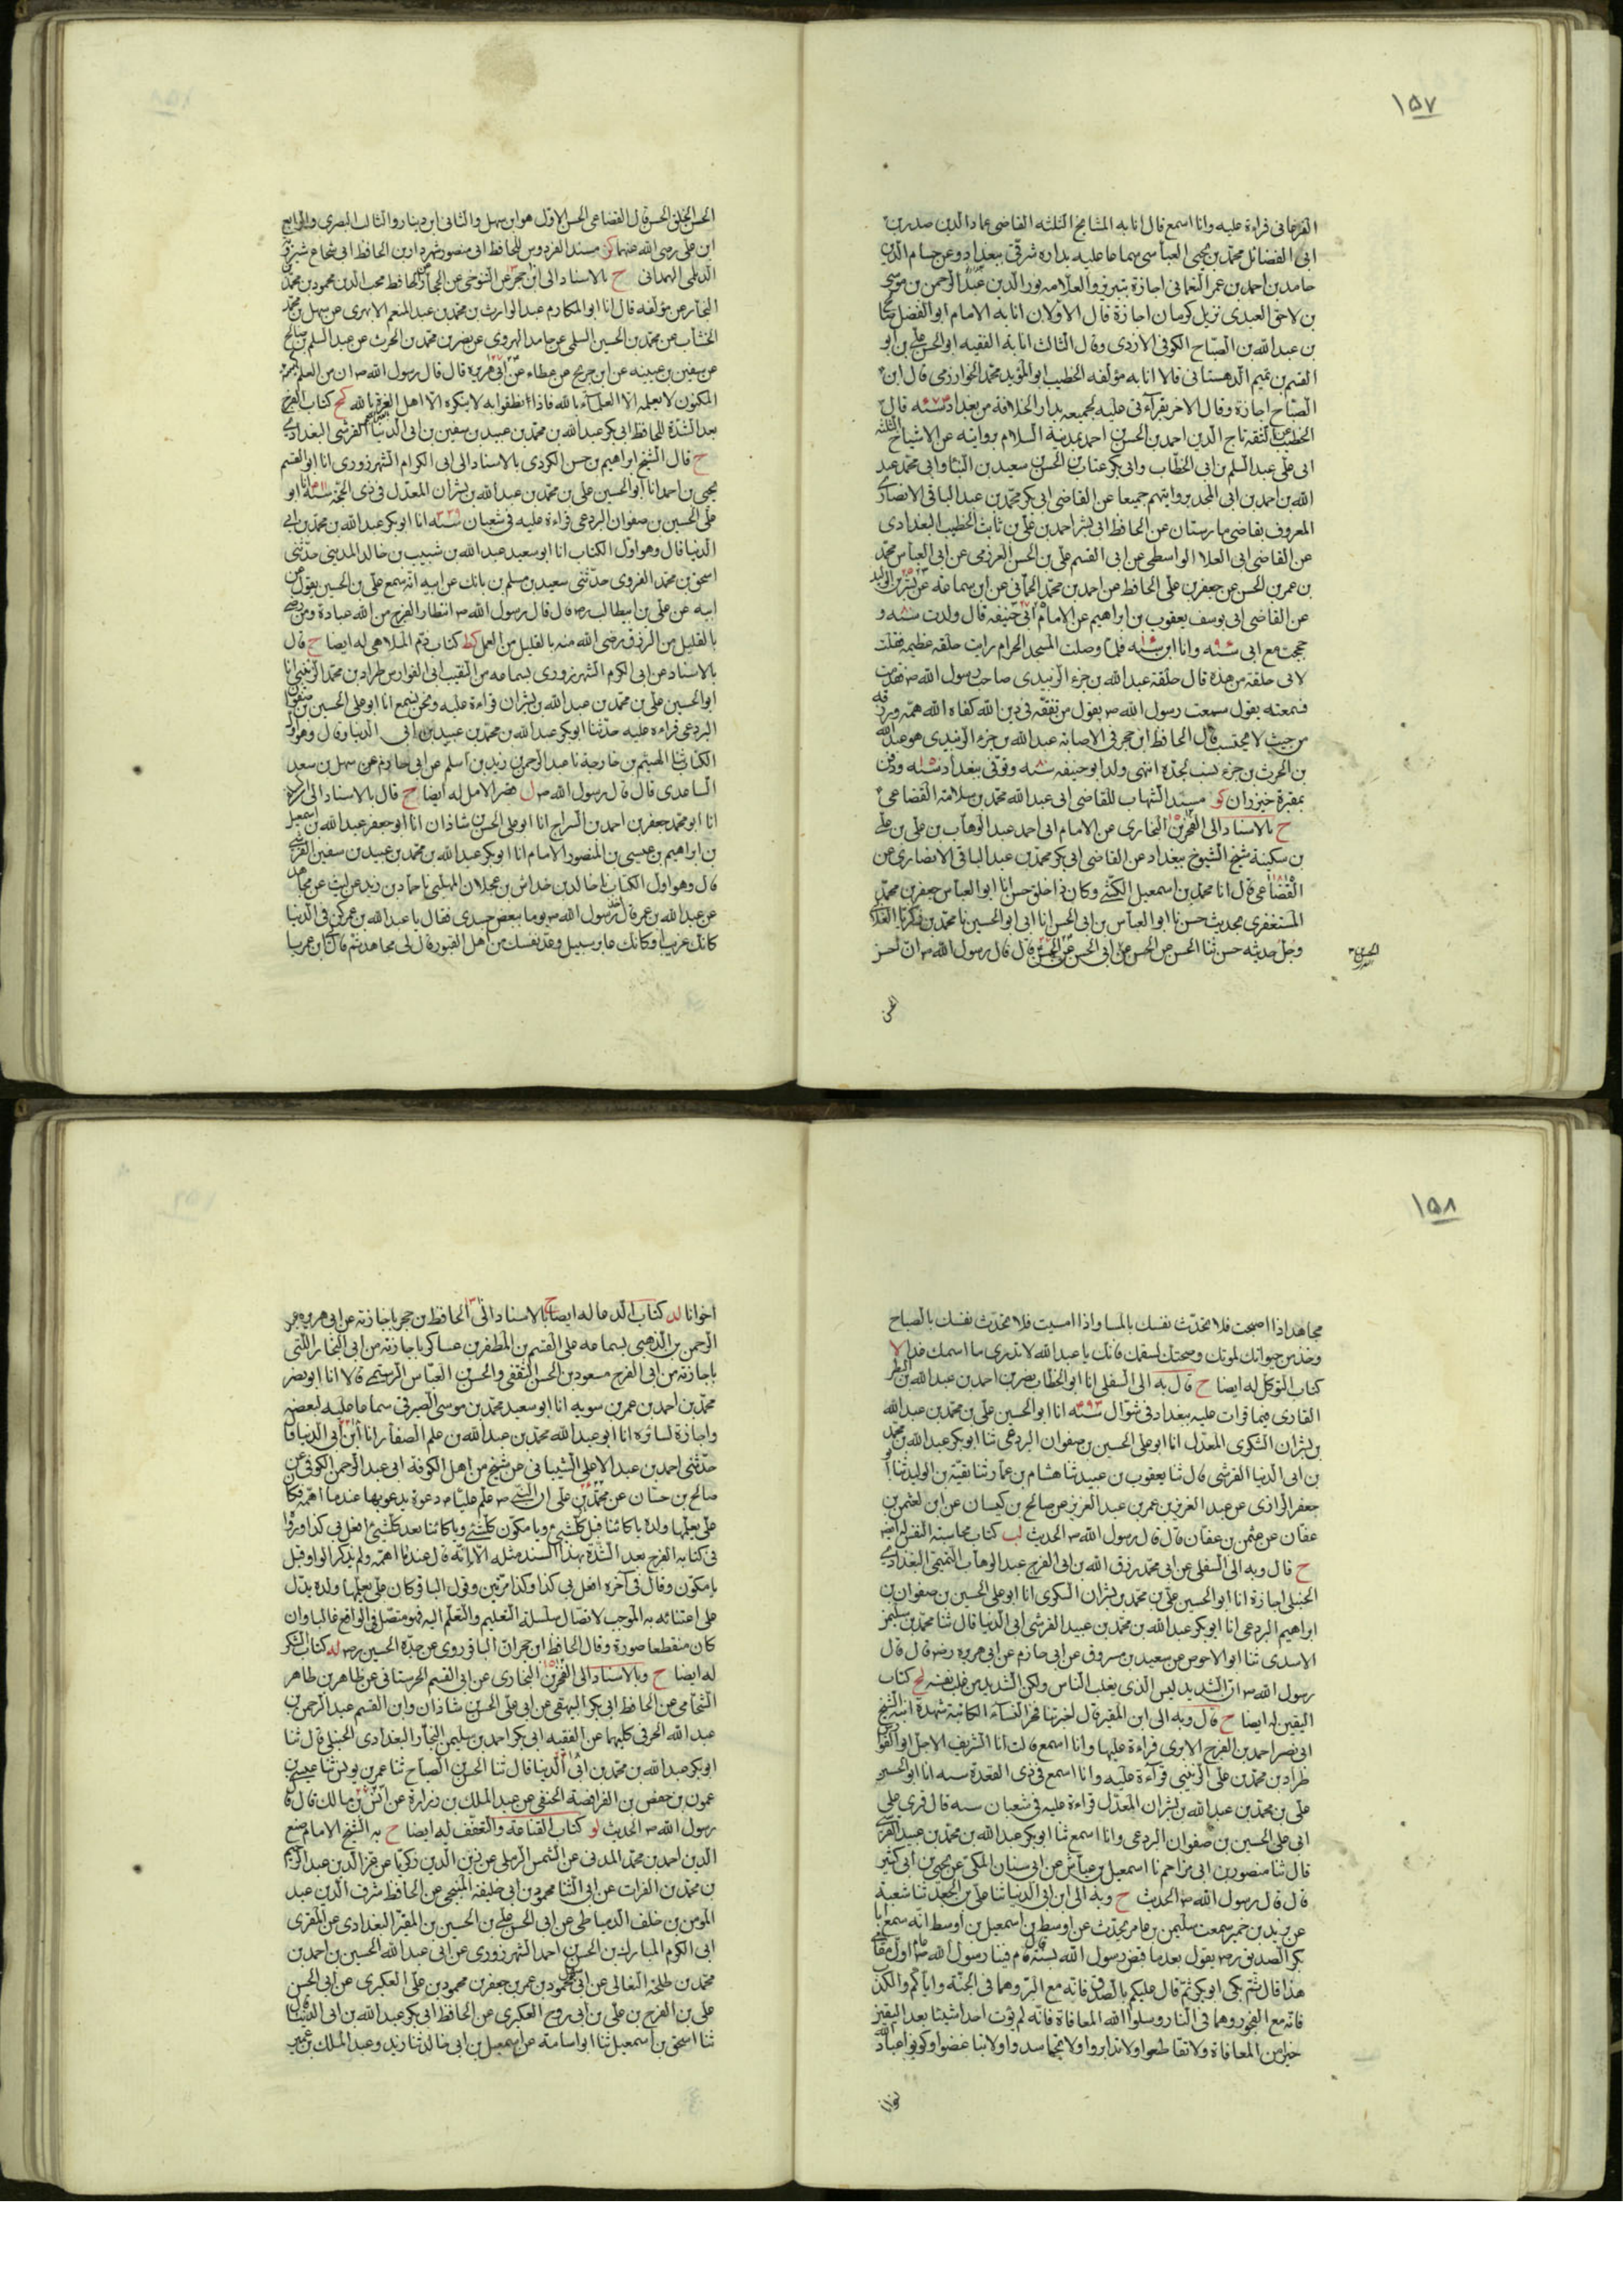 ١٥٧
الفرغانى قراءة عليه وانا اسمع قال انا به المشايخ الثلثه القاضى عماد الدين صدر بن
ابى الفضائل محمد بن يحيى العباسى سماعا عليه بداره شرقى ببغداد وعن حسام الدين
حامد بن احمد بن عمر النعمانى اجازة بتبريز والعلامه نور الدين عبد الرحمن بن موسى
بن لاحق العبدى نزيل كرمان اجازة قال الاولان انا به الامام ابو الفضل
بن عبد الله بن الصباح الكوفى الازدى وقال الثالث انا به الفقيه ابو الحسن على بن ابو
القسم بن تميم الدهستانى قالا انا به مؤلفه الخطيب ابو المؤيد محمد الخوارزمى قال ابن
الصباح اجازة وقال الاخر بقراءتى عليه لجميعه بدار الخلافة من بغداد سنه قال
الخطيب عن الثقه تاج الدين احمد بن الحسن بن احمد بمدينة السلام بروايته عن الاشياخ الثلثه
ابى على عبد السلم بن ابى الخطاب وابى بكر عتاب بن الحسن بن سعيد بن البنا وابى محمد عبد
الله بن احمد بن ابى المجد بروايتهم جميعا عن القاضى ابى بكر محمد بن عبد الباقى الانصارى
المعروف بقاضى مارستان عن الحافظ ابى بشر احمد بن على بن ثابت الخطيب البغدادى
عن القاضى ابى العلا الواسطى عن ابى القسم على بن الحسن العرزمى عن ابى العباس محمد
بن عمر بن الحسن عن جعفر بن على الحافظ عن احمد بن محمد الحمانى عن ابن سماعة عن بشر بن الوليد
عن القاضى ابى يوسف يعقوب بن ابراهيم عن الامام ابى حنيفه قال ولدت سنه ٨٠ و
حججت مع ابى سنه ٩٦ وانا ابن ١٦ سنه فلما وصلت المسجد الحرام رايت حلقه عظيمه فقلت
لابى حلقة من هذه قال حلقة عبد الله بن جزء الزبيدى صاحب رسول الله صم فتقدمت
فسمعته يقول سمعت رسول الله صم يقول من تفقه فى دين الله كفاه الله همه ورزقه
من حيث لا يحتسب قال الحافظ ابن حجر فى الاصابة عبد الله بن جزء الزبيدى هو عبد الله
بن الحرث بن جزء نسب لجده انتهى ولد ابو حنيفه سنه ٨٠ وتوفى ببغداد سنه ١٥٠ ودفن
بمقبرة خيزران كو مسند الشهاب للقاضى ابى عبد الله محمد بن سلامة القضاعى
ح بالاسناد الى الفخر بن البخارى عن الامام ابى احمد عبد الوهاب بن على بن على
بن سكينة شيخ الشيوخ ببغداد عن القاضى ابى بكر محمد بن عبد الباقى الانصارى عن
القضاعى قال انا محمد بن اسمعيل الكشى وكان ذا خلق حسن انا ابو العباس جعفر بن محمد
المستغفرى بحديث حسن نا ابو العباس بن ابى الحسن انا ابى ابو الحسين نا محمد بن زكريا الغلابى
وجل حديثه حسن ثنا الحسن عن الحسن عن ابى الحسن عن الحسن قال قال رسول الله صم ان احسن
الحسن
الحسن الخلق الحسن قال القضاعى الحسن الاول هو ابن سهل والثانى ابن دينار والثالث البصرى والرابع
ابن على رضى الله عنهما كز مسند الفردوس للحافظ ابى منصور شهردار بن الحافظ ابى شجاع شيرويه
الديلمى الهمدانى ح بالاسناد الى ابن حجر عن التنوخى عن الحجار الحافظ محب الدين محمود بن محمد
النجار عن مؤلفه قال انا ابو المكارم عبد الوارث بن محمد بن عبد المنعم الابهرى عن سهل بن محمد
الخشاب عن محمد بن الحسين السلمى عن حامد الهروى عن نصر بن محمد بن الحرث عن عبد السلم بن صالح
عن سفين بن عيينه عن ابن جريج عن عطاء عن ابى هريره قال قال رسول الله صم ان من العلم كهيئة
المكنون لا يعلمه الا العلماء بالله فاذا نطقوا به لا ينكره الا اهل الغرة بالله كح كتاب الفرج
بعد الشدة للحافظ ابى بكر عبد الله بن محمد بن عبيد بن سفين بن ابى الدنيا القرشى البغدادى
ح قال الشيخ ابراهيم بن حسن الكردى بالاسناد الى ابى الكرام الشهرزورى انا ابو القسم
يحيى بن احمد انا ابو الحسين على بن محمد بن عبد الله بن بشران المعدل فى ذى الحجة سنة انا ابو
على الحسين بن صفوان البردعى قراءة عليه فى شعبان سنه انا ابو بكر عبد الله بن محمد بن ابى
الدنيا قال وهو اول الكتاب انا ابو سعيد عبد الله بن شبيب بن خالد المدينى حدثنى
اسحق بن محمد الفروى حدثنى سعيد بن مسلم بن بانك عن ابيه انه سمع على بن الحسين يقول عن
ابيه عن على بن ابيطالب رضه قال قال رسول الله صم انتظار الفرج من الله عبادة ومن رضى
بالقليل من الرزق رضى الله منه بالقليل من العمل كط كتاب ذم الملاهى له ايضا ح قال
بالاسناد عن ابى الكرم الشهرزورى بسماعه من النقيب ابى الفوارس طراد بن محمد الزينبى انا
ابو الحسين على بن محمد بن عبد الله بن بشران قراءة عليه ونحن نسمع انا ابو على الحسين بن صفوان
البردعى قراءه عليه حدثنا ابو بكر عبد الله بن محمد بن عبيد بن ابى الدنيا وقال وهو اول
الكتاب ثنا الهيثم بن خارجة نا عبد الرحمن بن زيد بن اسلم عن ابى حازم عن سهل بن سعد
الساعدى قال قال رسول الله صم ل قصر الامل له ايضا ح قال بالاسناد الى
انا ابو محمد جعفر بن احمد بن السراج انا ابو على الحسن بن شاذان انا ابو جعفر عبد الله بن اسمعيل
بن ابراهيم بن عيسى بن المنصور الامام انا ابو بكر عبد الله بن محمد بن عبيد بن سفين القرشى
قال وهو اول الكتاب نا خالد بن خداش بن عجلان المهلبى نا حماد بن زيد عن ليث عن مجاهد
عن عبد الله بن عمر قال اخذ رسول الله صم يوما ببعض جسدى فقال يا عبد الله بن عمر كن فى الدنيا
كانك غريب او كانك عابر سبيل وعد نفسك من اهل القبور قال لى مجاهد ثم قال ابن عمر يا
١٥٨
مجاهد اذا اصبحت فلا تحدث نفسك بالمسا واذا امسيت فلا تحدث نفسك بالصباح
وخذ من حيواتك لموتك وصحتك لسقمك فانك يا عبد الله لا تدرى ما اسمك غدا لا
كتاب التوكل له ايضا ح قال به الى السلفى انا ابو الخطاب نصر بن احمد بن عبد الله بن البطر
القارى فيما قرات عليه ببغداد فى شوال سنه ٤٩٣ انا ابو الحسين على بن محمد بن عبد الله
بن بشران السكرى المعدل انا ابو على الحسين بن صفوان البردعى ثنا ابو بكر عبد الله بن محمد
بن ابى الدنيا القرشى قال ثنا يعقوب بن عبيد ثنا هشام بن عمار ثنا بقية بن الوليد ثنا ابو
جعفر الرازى عن عبد العزيز بن عمر بن عبد العزيز عن صالح بن كيسان عن ابن لعثمن بن
عفان عن عثمن بن عفان قال قال رسول الله صم الحديث لب كتاب محاسبة النفس له ايضا
ح قال وبه الى السلفى عن ابى محمد رزق الله بن ابى الفرج عبد الوهاب التميمى البغدادى
الحنبلى اجازة انا ابو الحسين على بن محمد بن بشران السكرى انا ابو على الحسين بن صفوان بن
ابراهيم البردعى انا ابو بكر عبد الله بن محمد بن عبيد القرشى ابى الدنيا قال ثنا محمد بن سليمن
الاسدى ثنا ابو الاحوص عن سعيد بن مسروق عن ابى حازم عن ابى هريره رضه قال قال
رسول الله صم ان الشديد ليس الذى يغلب الناس ولكن الشديد من غلب نفسه لج كتاب
اليقين له ايضا ح قال وبه الى ابن المقير قال اخبرتنا فخر النساء الكاتبة شهدة ابنة الشيخ
ابى نصر احمد بن الفرج الابرى قراءة عليها وانا اسمع قالت انا الشريف الاجل ابو الفوارس
طراد بن محمد بن على الزينبى قراءة عليه وانا اسمع فى ذى القعدة سنه انا ابو الحسين
على بن محمد بن عبد الله بن بشران المعدل قراءة عليه فى شعبان سنه قال قرى على
ابى على الحسين بن صفوان البردعى وانا اسمع ثنا ابو بكر عبد الله بن محمد بن عبيد القرشى
قال ثنا منصور بن ابى مزاحم نا اسمعيل بن عياش عن ابى سنان المكى عن يحيى بن ابى كثير
قال قال رسول الله صم الحديث ح وبه الى ابن ابى الدنيا ثنا على بن الجعد ثنا شعبة
عن يزيد بن خمير سمعت سليمن بن عامر يحدث عن اوسط بن اسمعيل بن اوسط انه سمع ابا
بكر الصديق رضه يقول بعد ما قبض رسول الله بسنة قال قام فينا رسول الله صم عام اول مقامى
هذا قال ثم بكى ابو بكر ثم قال عليكم بالصدق فانه مع البر وهما فى الجنة واياكم والكذب
فانه مع الفجور وهما فى النار وسلوا الله المعافاة فانه لم يؤت احد شيئا بعد اليقين
خيرا من المعافاة ولا تقاطعوا ولا تدابروا ولا تحاسدوا ولا تباغضوا وكونوا عباد الله
اخوانا
اخوانا لد كتاب الدعا له ايضا ح بالاسناد الى الحافظ بن حجر باجازته عن ابى هريره عبد
الرحمن بن الذهبى بسماعه على القسم بن المظفر بن عساكر باجازته من ابى النجار اللتى
باجازته من ابى الفرج مسعود بن الحسن الثقفى والحسن بن العباس الرستمى قالا انا ابو نصر
محمد بن احمد بن عمر بن سويه انا ابو سعيد محمد بن موسى الصيرفى سماعا عليه لبعضه
واجازة لسائره انا ابو عبد الله محمد بن عبد الله بن علم الصفار انا ابن ابى الدنيا قال
حدثنى احمد بن عبد الاعلى الشيبانى عن شيخ من اهل الكوفة ابى عبد الرحمن الكوفى عن
صالح بن حسان عن محمد بن على ان النبى صم علم عليا صم دعوة يدعو بها عند ما اهمه فكان
على يعلمها ولده يا كائنا قبل كل شئ ويا مكون كل شئ ويا كائنا بعد كل شئ افعل بى كذا وروا
فى كتابه الفرج بعد الشدة بهذا السند مثله الا انه قال عند ما اهمه ولم يذكر الواو قبل
يا مكون وقال فى آخره افعل بى كذا وكذا مرتين وقول الباقر كان على يعلمها ولده يدل
على اعتنائه به الموجب لاتصال سلسلة التعليم والتعلم اليه فهو متصل فى الواقع غالبا وان
كان منقطعا صورة وقال الحافظ ابن حجر ان الباقر روى عن جده الحسين رضه له كتاب الشكر
له ايضا ح وبالاسناد الى الفخر بن البخارى عن ابى القسم الحرستانى عن ظاهر بن طاهر
الشحامى عن الحافظ ابى بكر البيهقى عن ابى على الحسن بن شاذان وابن القسم عبد الرحمن بن
عبد الله الحرفى كليهما عن الفقيه ابى بكر احمد بن سليمن النجاد البغدادى الحنبلى قال ثنا
ابو بكر عبد الله بن محمد بن ابى الدنيا قال ثنا الحسن بن الصباح ثنا عمر بن يونس ثنا عيسى بن
عون بن حفص بن الفرافصة الحنفى عن عبد الملك بن زرارة عن انس بن مالك قال قال
رسول الله صم الحديث لو كتاب القناعة والتعفف له ايضا ح به الشيخ الامام صفى
الدين احمد بن محمد المدنى عن الشمس الرملى عن زين الدين زكريا عن عز الدين عبد الرحيم
بن محمد بن الفرات عن ابى الثنا محمود بن ابى خليفة المنبجى عن الحافظ شرف الدين عبد
المؤمن بن خلف الدمياطى عن ابى الحسن على بن الحسين بن المقير البغدادى عن المقرى
ابى الكرم المبارك بن الحسن بن احمد الشهرزورى عن ابى عبد الله الحسين بن احمد بن
محمد بن طلحة النعالى عن ابى محمود بن عمر بن جعفر بن محمود بن على العكبرى عن ابى الحسن
على بن الفرج بن على بن ابى روح العكبرى عن الحافظ ابى بكر عبد الله بن ابى الدنيا قال
ثنا اسحق بن اسمعيل ثنا ابو اسامة عن اسمعيل بن ابى خالد ثنا زيد وعبد الملك بن عمير